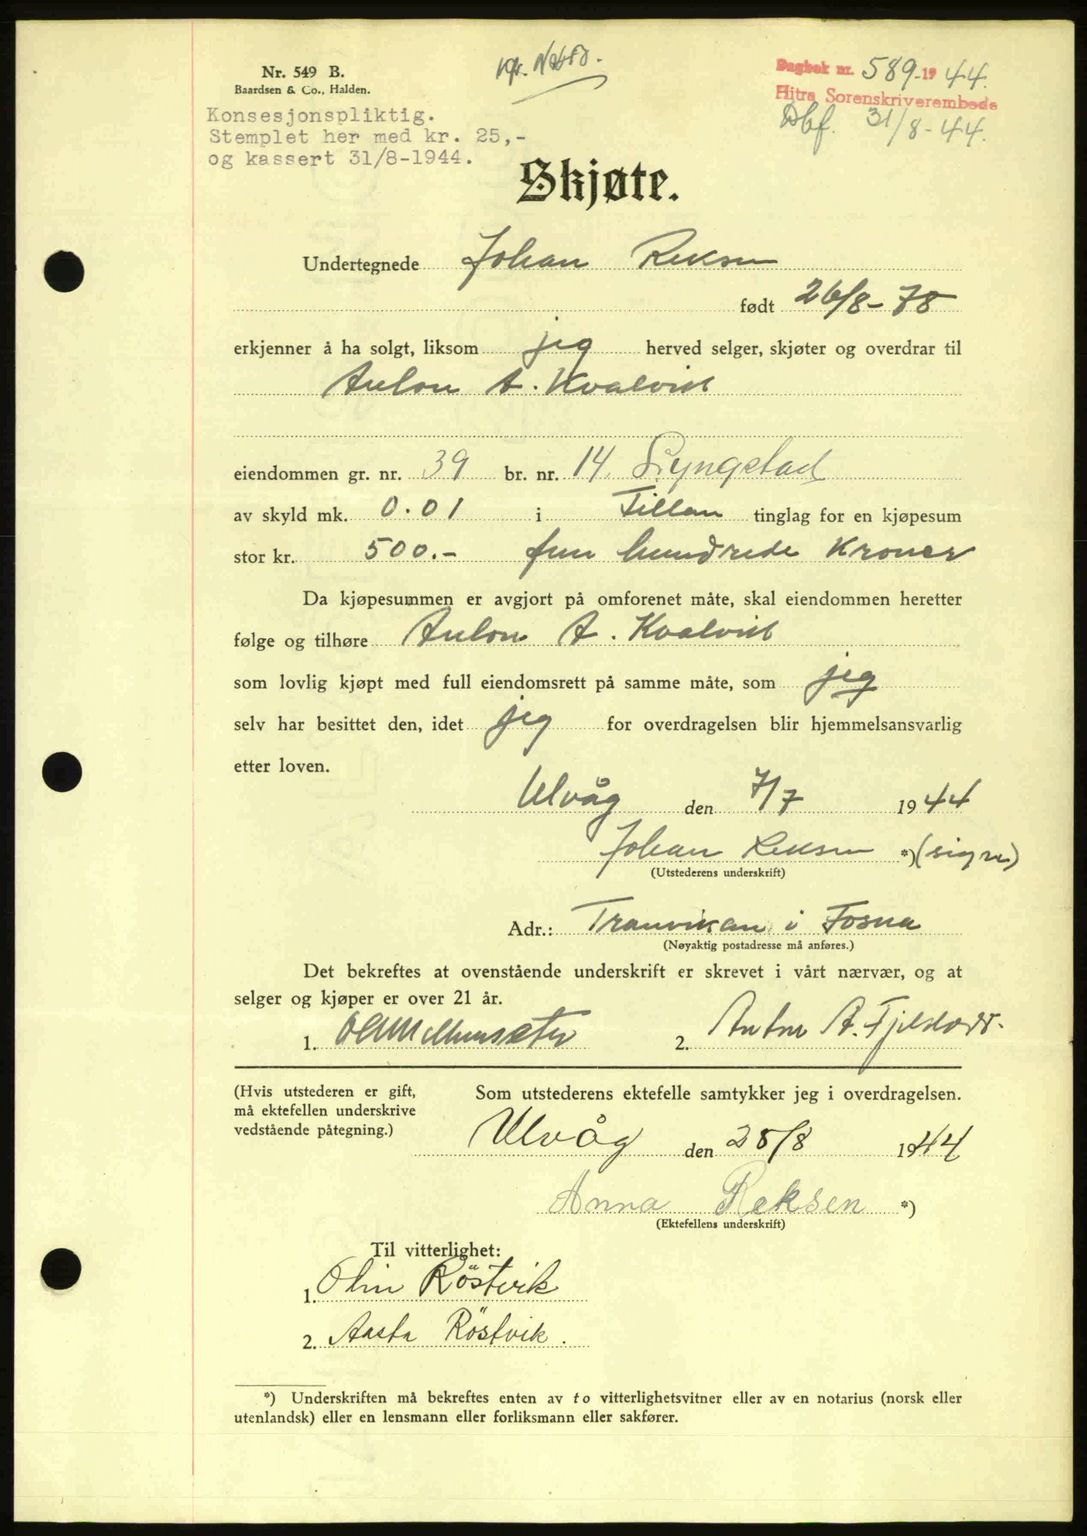 Nr. 549 B.
Baardsen & Co., Halden.
Konsesjonspliktig.
Stemplet her med kr. 25,-
og kassert 31/8-1944.
Dagbok nr. 589 - 1944.
Hitra Sorenskriverembede
Dbf. 31/8-44.
Skjøte.
Undertegnede Johan Reksen
født 26/8-78
erkjenner å ha solgt, liksom jeg herved selger, skjøter og overdrar til
Anton A. Kvalvik
eiendommen gr. nr. 39 br. nr. 14. Lyngstad
av skyld mk. 0.01 i Fillan tinglag for en kjøpesum
stor kr. 500.- fem hundrede kroner
Da kjøpesummen er avgjort på omforenet måte, skal eiendommen heretter
følge og tilhøre Anton A. Kvalvik
som lovlig kjøpt med full eiendomsrett på samme måte, som jeg
selv har besittet den, idet jeg for overdragelsen blir hjemmelsansvarlig
etter loven.
Ulvåg den 7/7 1944
Johan Reksen *) (sign)
(Utstederens underskrift)
Adr.: Tranvikan i Fosna
(Nøyaktig postadresse må anføres.)
Det bekreftes at ovenstående underskrift er skrevet i vårt nærvær, og at
selger og kjøper er over 21 år.
1. 2. Anton A.
(Hvis utstederen er gift,
må ektefellen underskrive
vedstående påtegning.)
Som utstederens ektefelle samtykker jeg i overdragelsen.
Ulvåg den 25/8 1944
Anna Reksen *)
(Ektefellens underskrift)
Til vitterlighet:
1. Olin Röstvik
2. Aasta Röstvik.
*) Underskriften må bekreftes enten av to vitterlighetsvitner eller av en notarius (norsk eller
utenlandsk) eller en lensmann eller forliksmann eller sakfører.